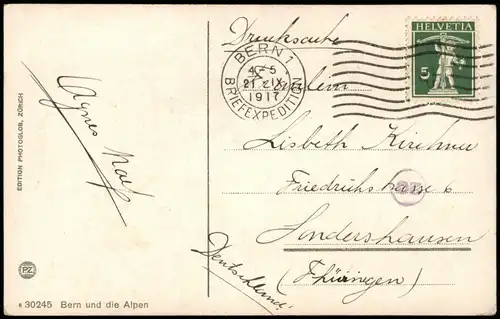 Drucksache
BERN 1
4-5
21. IX.
1917
BRIEFEXPEDITION
HELVETIA
5
Fräulein
Lisbeth Kirchner
Friedrichstrasse 6
Sondershausen
(Thüringen)
Deutschland
Agnes
EDITION PHOTOGLOB, ZÜRICH
PZ
30245 Bern und die Alpen